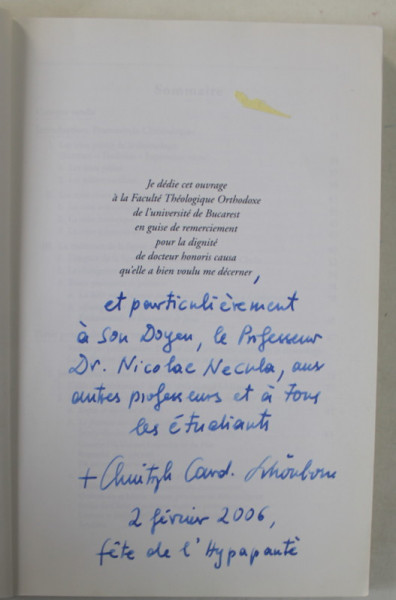 Sommaire
Je dédie cet ouvrage
à la Faculté Théologique Orthodoxe
de l'université de Bucarest
en guise de remerciement
pour la dignité
de docteur honoris causa
qu'elle a bien voulu me décerner,
et particulièrement
à son Doyen, le Professeur
Dr. Nicolae Necula, aux
autres professeurs et à tous
les étudiants
+ Christoph Card. Schönborn
2 février 2006,
fête de l'Hypapantè